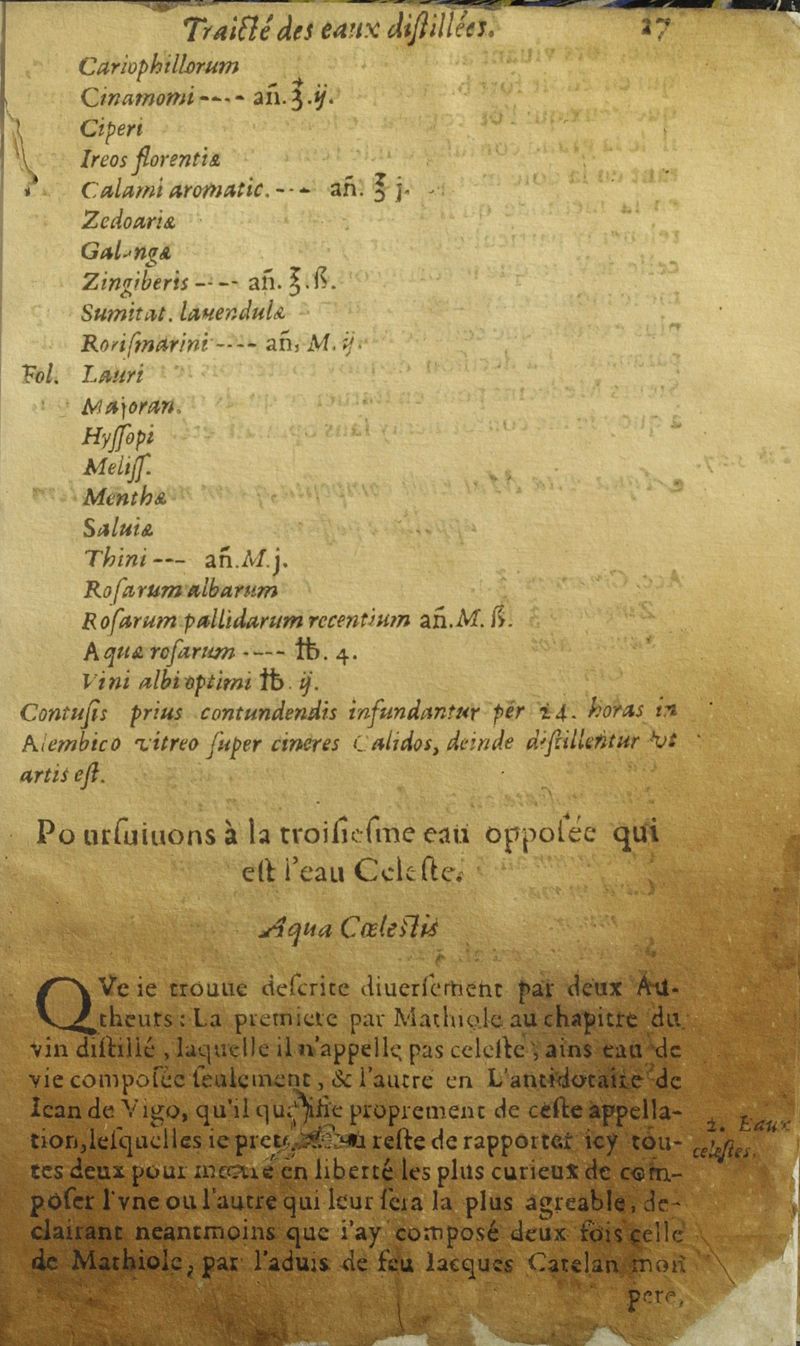 Traicté des eaux diſtillées. 27
Cariophillorum
Cinamomi ---- an̄. ℥.ij.
Ciperi
Ireos florentiæ
Calami aromatic. --- an̄. ℥ j.
Zedoariæ
Galangæ
Zingiberis ---- an̄. ℥.ß.
Sumitat. lauendulæ
Roriſmarini ---- an̄, M. ij.
Fol. Lauri
Majoran.
Hyſſopi
Meliſſ.
Menthæ
Saluiæ
Thini --- an̄.M.j.
Roſarum albarum
Roſarum pallidarum recentium an̄.M. ß.
Aquæ roſarum ---- ℔. 4.
Vini albi optimi ℔. ij.
Contuſis prius contundendis infundantur per 24. horas in
Alembico vitreo ſuper cineres Calidos, deinde diſtillentur vt
artis eſt.
Pourſuiuons à la troiſieſme eau oppoſée qui
eſt l'eau Celeſte.
Aqua Cœleſtis
QVe ie trouue deſcrite diuerſement par deux Au-
theurs : La premiere par Mathiole au chapitre du
vin diſtilié, laquelle il n'appelle pas celeſte, ains eau de
vie compoſée ſeulement, & l'autre en L'antidotaire de
Iean de Vigo, qu'il proprement de ceſte appella-
tion, leſquelles ie reſte de rapporter icy tou-
tes deux pour en liberté les plus curieux de com-
poſer l'vne ou l'autre qui leur ſera la plus agreable, de-
clairant neantmoins que i'ay composé deux fois celle
de Mathiole, par l'aduis de feu Iacques Catelan mon
pere,
2. Eaux
celeſtes.